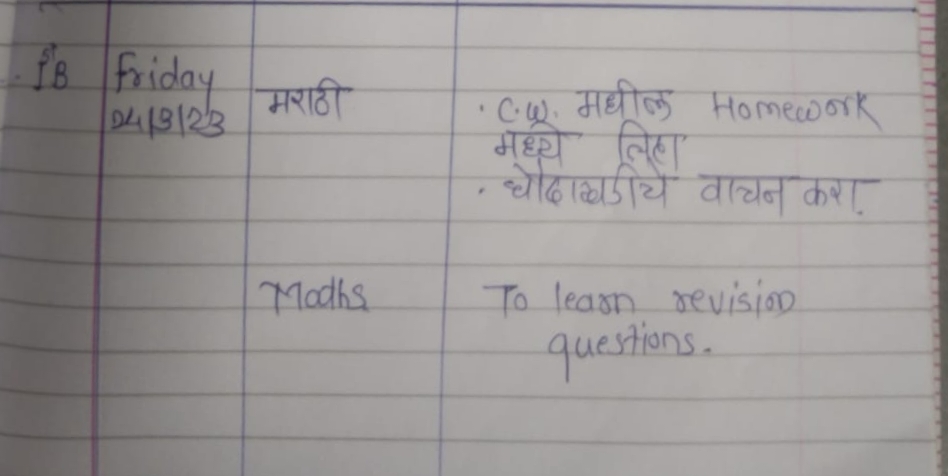 Ist B Friday
04/3/23 मराठी · C.W. मधील Homework
मध्ये लिहा
· चौदाखडीचे वाचन करा.
Maths To learn revision
questions.